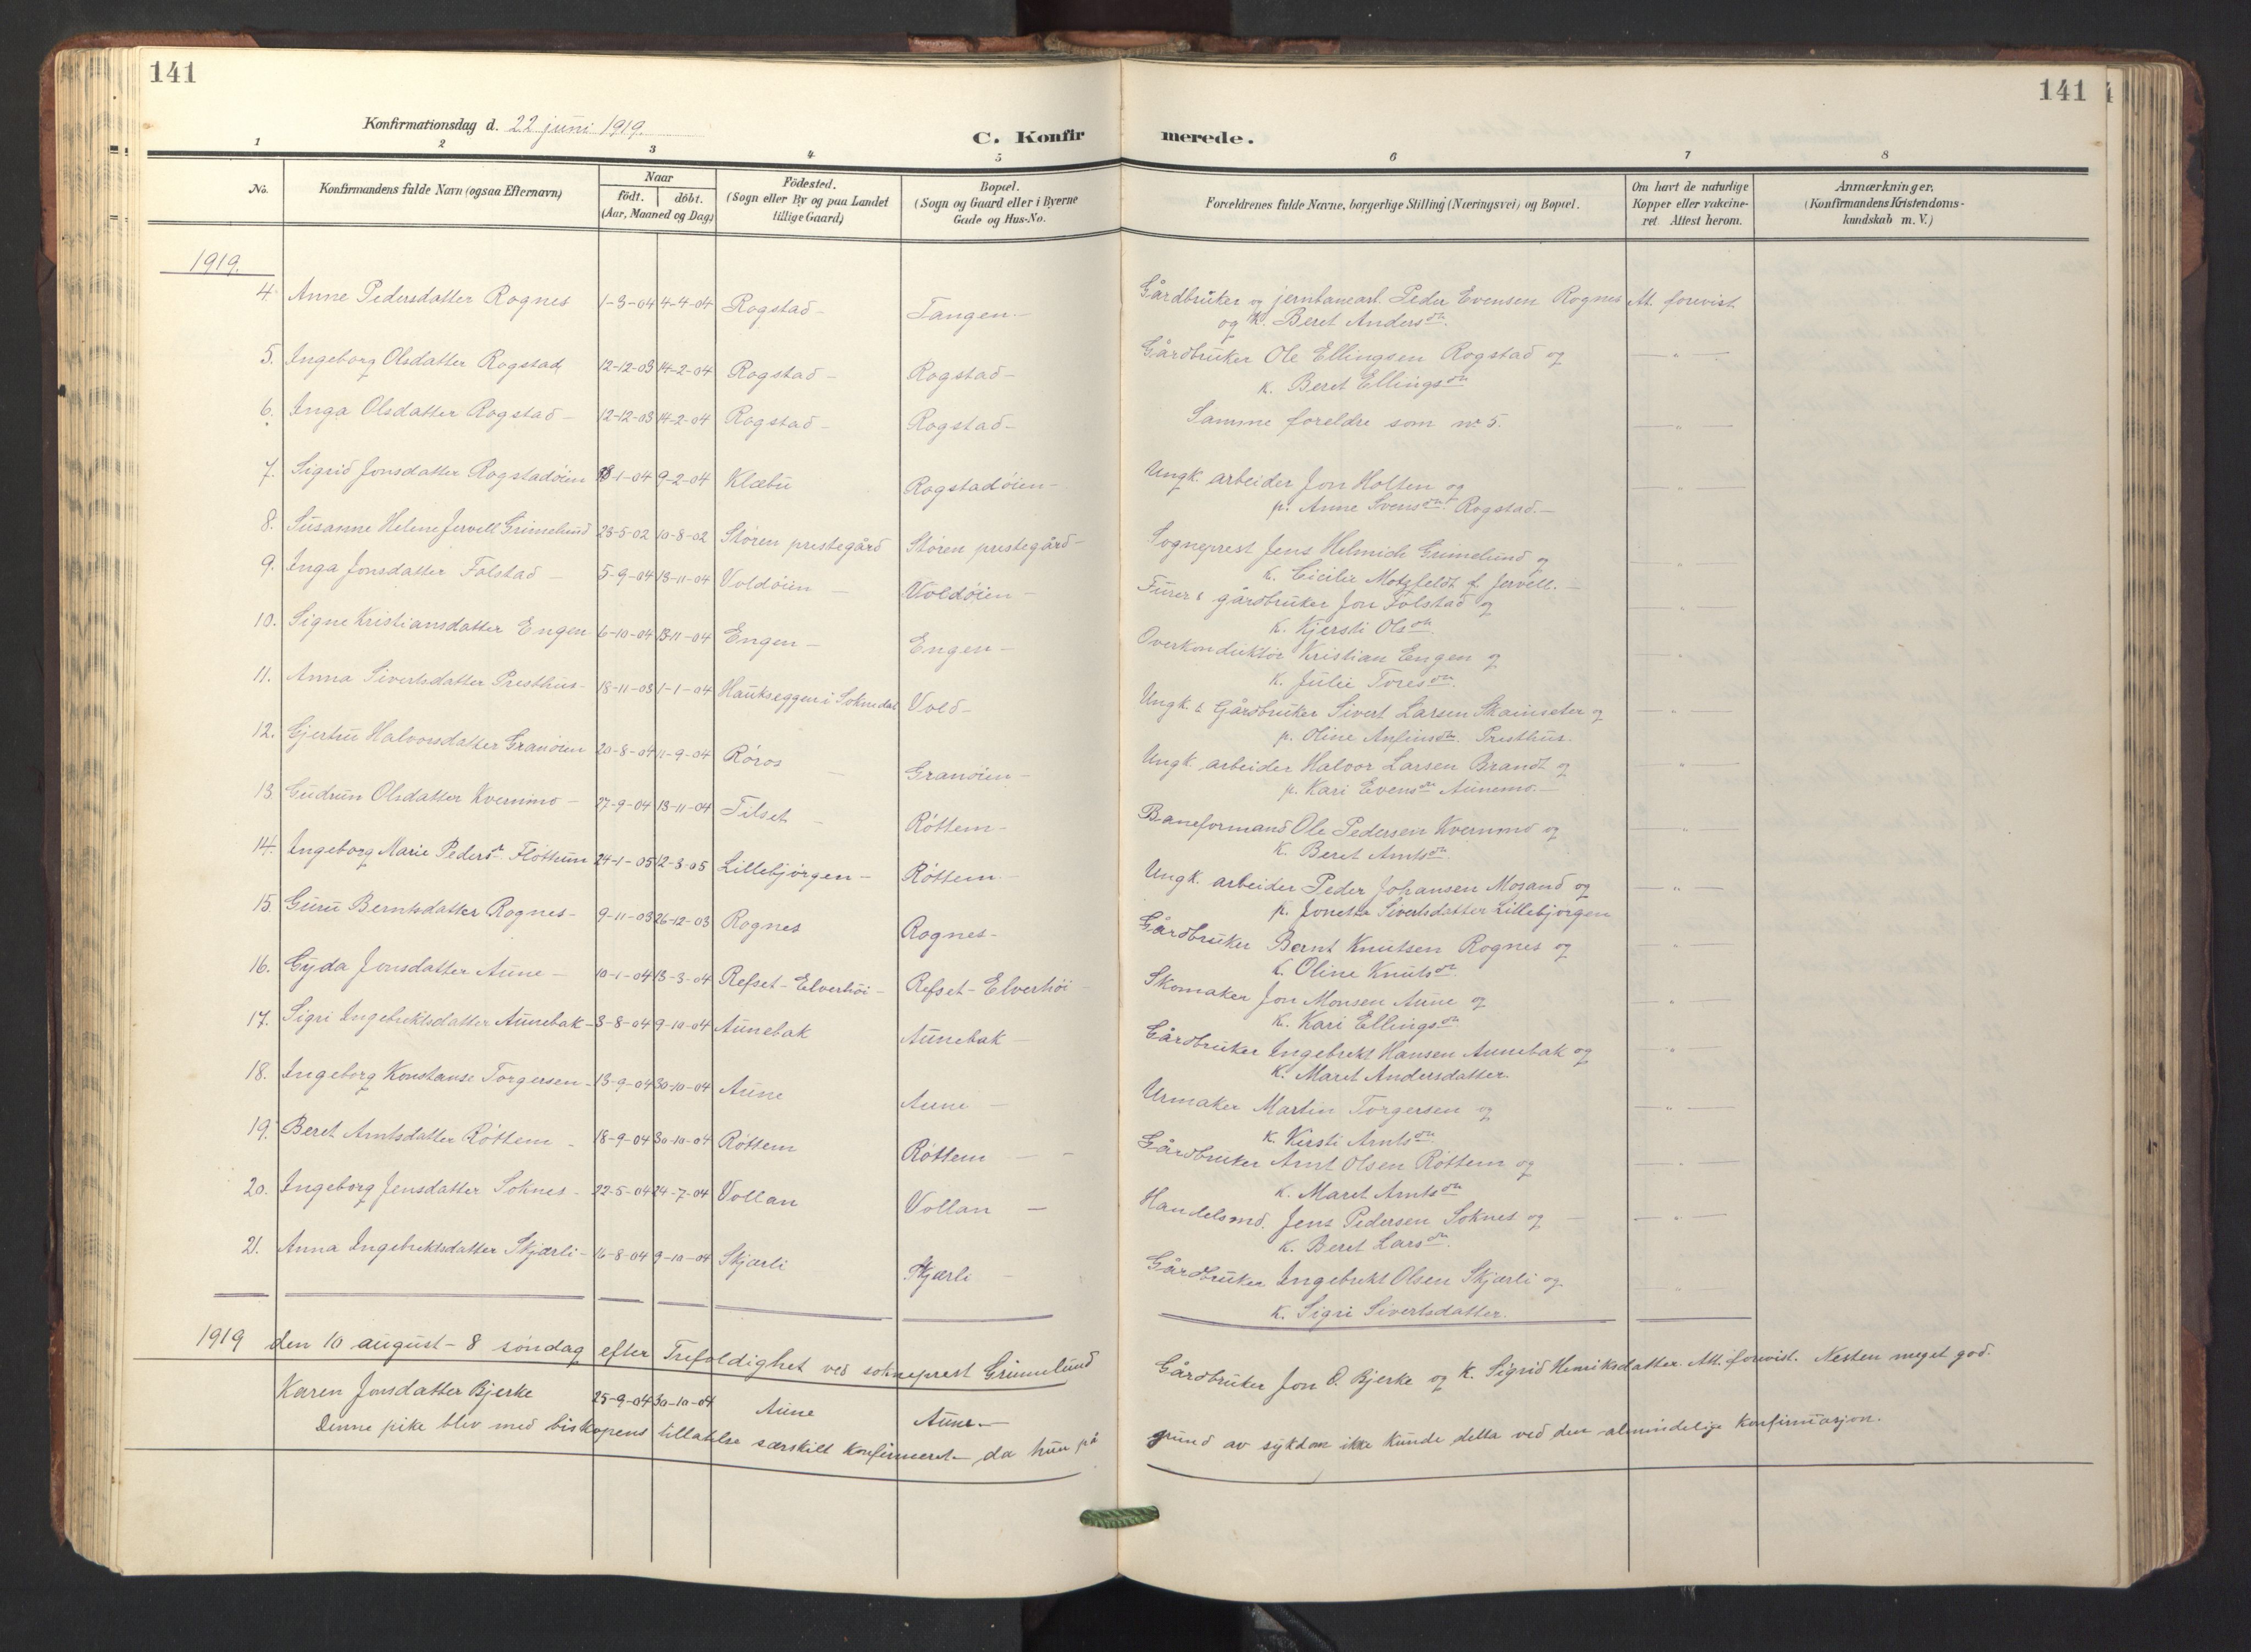 141
141
Konfirmationsdag d. 22 juni 1919.
C. Konfirmerede.
1 2 3 4 5 6 7 8
No. Konfirmandens fulde Navn (ogsaa Efternavn) Naar födt. döbt. (Aar, Maaned og Dag) Födested. (Sogn eller By og paa Landet tillige Gaard) Bopæl. (Sogn og Gaard eller i Byerne Gade og Hus-No. Forældrenes fulde Navne, borgerlige Stilling (Næringsvei) og Bopæl. Om havt de naturlige Kopper eller vakcineret Attest herom. Anmærkninger. (Konfirmandens Kristendomskundskab m. V.)
1919.
4. Anne Pedersdatter Rognes 1-3-04 4-4-04 Rogstad - Tangen - Gårdbruker og jernbanearb. Peder Evensen Rognes Att. forevist
og K. Beret Andersdtr.
5. Ingeborg Olsdatter Rogstad 12-12-03 14-2-04 Rogstad - Rogstad - Gårdbruker Ole Ellingsen Rogstad og — " —
K. Beret Ellingsdtr
6. Inga Olsdatter Rogstad - 12-12-03 14-2-04 Rogstad - Rogstad - Samme foreldre som nr 5. — " —
7. Sigrid Jonsdatter Rogstadöien 1-04 9-2-04 Klæbu Rogstadöien - Ungk. arbeider Jon Holten og — " —
p. Anne Svensdtr Rogstad. —
8. Susanne Helene Jervell Grimelund 23-5-02 10-8-02 Stören prestegård Stören prestegård - Sogneprest Jens Helmich Grimelund og — " —
K. Cicilie Motzfeldt f. Jervell. —
9. Inga Jonsdatter Folstad - 5-9-04 13-11-04 Voldöien - Voldöien - Furer & gårdbruker Jon Folstad og — " —
K. Kjersti Olsdtr.
10. Signe Kristiansdatter Engen 6-10-04 13-11-04 Engen - Engen - Overkonduktör Kristian Engen og — " —
K. Julie Toresdtr.
11. Anna Sivertsdatter Presthus - 18-11-03 1-1-04 Haukseggen i Soknedal Vold - Ungk. & Gårdbruker Sivert Larsen Skainseter og — " —
p. Oline Anfinsdtr. Presthus.
12. Gjertru Halvorsdatter Granöien 20-8-04 11-9-04 Röros - Granöien - Ungk. arbeider Halvor Larsen Brandt og — " —
p. Kari Evensdtr Aunemo. —
13. Gudrun Olsdatter Kvernmo - 27-9-04 13-11-04 Tilset - Röttem - Baneformand Ole Pedersen Kvernmo og — " —
K. Beret Arntsdtr.
14. Ingeborg Marie Pedersd. Flöttum 24-1-05 12-3-05 Lillebjörgen - Röttem - Ungk. arbeider Peder Johansen Mosand og — " —
p. Jonetta Sivertsdatter Lillebjörgen
15. Guru Berntsdatter Rognes - 9-11-03 26-12-03 Rognes Rognes - Gårdbruker Bernt Knutsen Rognes og — " —
K. Oline Knutsdtr.
16. Gyda Jonsdatter Aune - 10-1-04 13-3-04 Refset - Elverhöi - Refset - Elverhöi - Skomaker Jon Monsen Aune og — " —
K. Kari Ellingsdtr.
17. Sigri Ingebriktsdatter Aunebak - 3-8-04 9-10-04 Aunebak Aunebak - Gårdbruker Ingebrikt Hansen Aunebak og — " —
K. Marit Andersdatter.
18. Ingeborg Konstanse Torgersen - 13-9-04 30-10-04 Aune Aune - Urmaker Martin Torgersen og — " —
K. Kirsti Arntsdtr.
19. Beret Arntsdatter Röttem - 18-9-04 30-10-04 Röttem Röttem - Gårdbruker Arnt Olsen Röttem og — " —
K. Marit Arntsdtr
20. Ingeborg Jensdatter Soknes - 22-5-04 24-7-04 Vollan Vollan - Handelsmd. Jens Pedersen Soknes og — " —
K. Beret Larsdtr.
21. Anna Ingebriktsdatter Skjærli - 16-8-04 9-10-04 Skjærli Skjærli - Gårdbruker Ingebrikt Olsen Skjærli og — " —
K. Sigri Sivertsdatter.
1919 den 10 august - 8 söndag efter Trefoldighet ved sokneprest Grimelund
Karen Jonsdatter Bjerke 25-9-04 30-10-04 Aune Aune - Gårdbruker Jon O. Bjerke og K. Sigrid Henriksdatter. Att. forevist. Nesten meget god.
Denne pike blev med biskopens tillatelse særskilt konfirmeret - da hun på grund av sykdom ikke kunde delta ved den almindelige konfirmasjon.